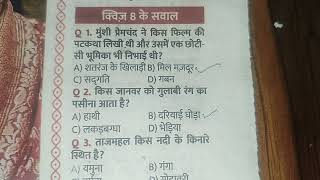 क्विज़ 8 के सवाल
Q 1. मुंशी प्रेमचंद ने किस फिल्म की
पटकथा लिखी थी और उसमें एक छोटी-
सी भूमिका भी निभाई थी?
A) शतरंज के खिलाड़ी B) मिल मज़दूर
C) सद्गति D) गबन
Q 2. किस जानवर को गुलाबी रंग का
पसीना आता है?
A) हाथी B) दरियाई घोड़ा
C) लकड़बग्घा D) भेड़िया
Q 3. ताजमहल किस नदी के किनारे
स्थित है?
A) यमुना B) गंगा
D) गोदावरी